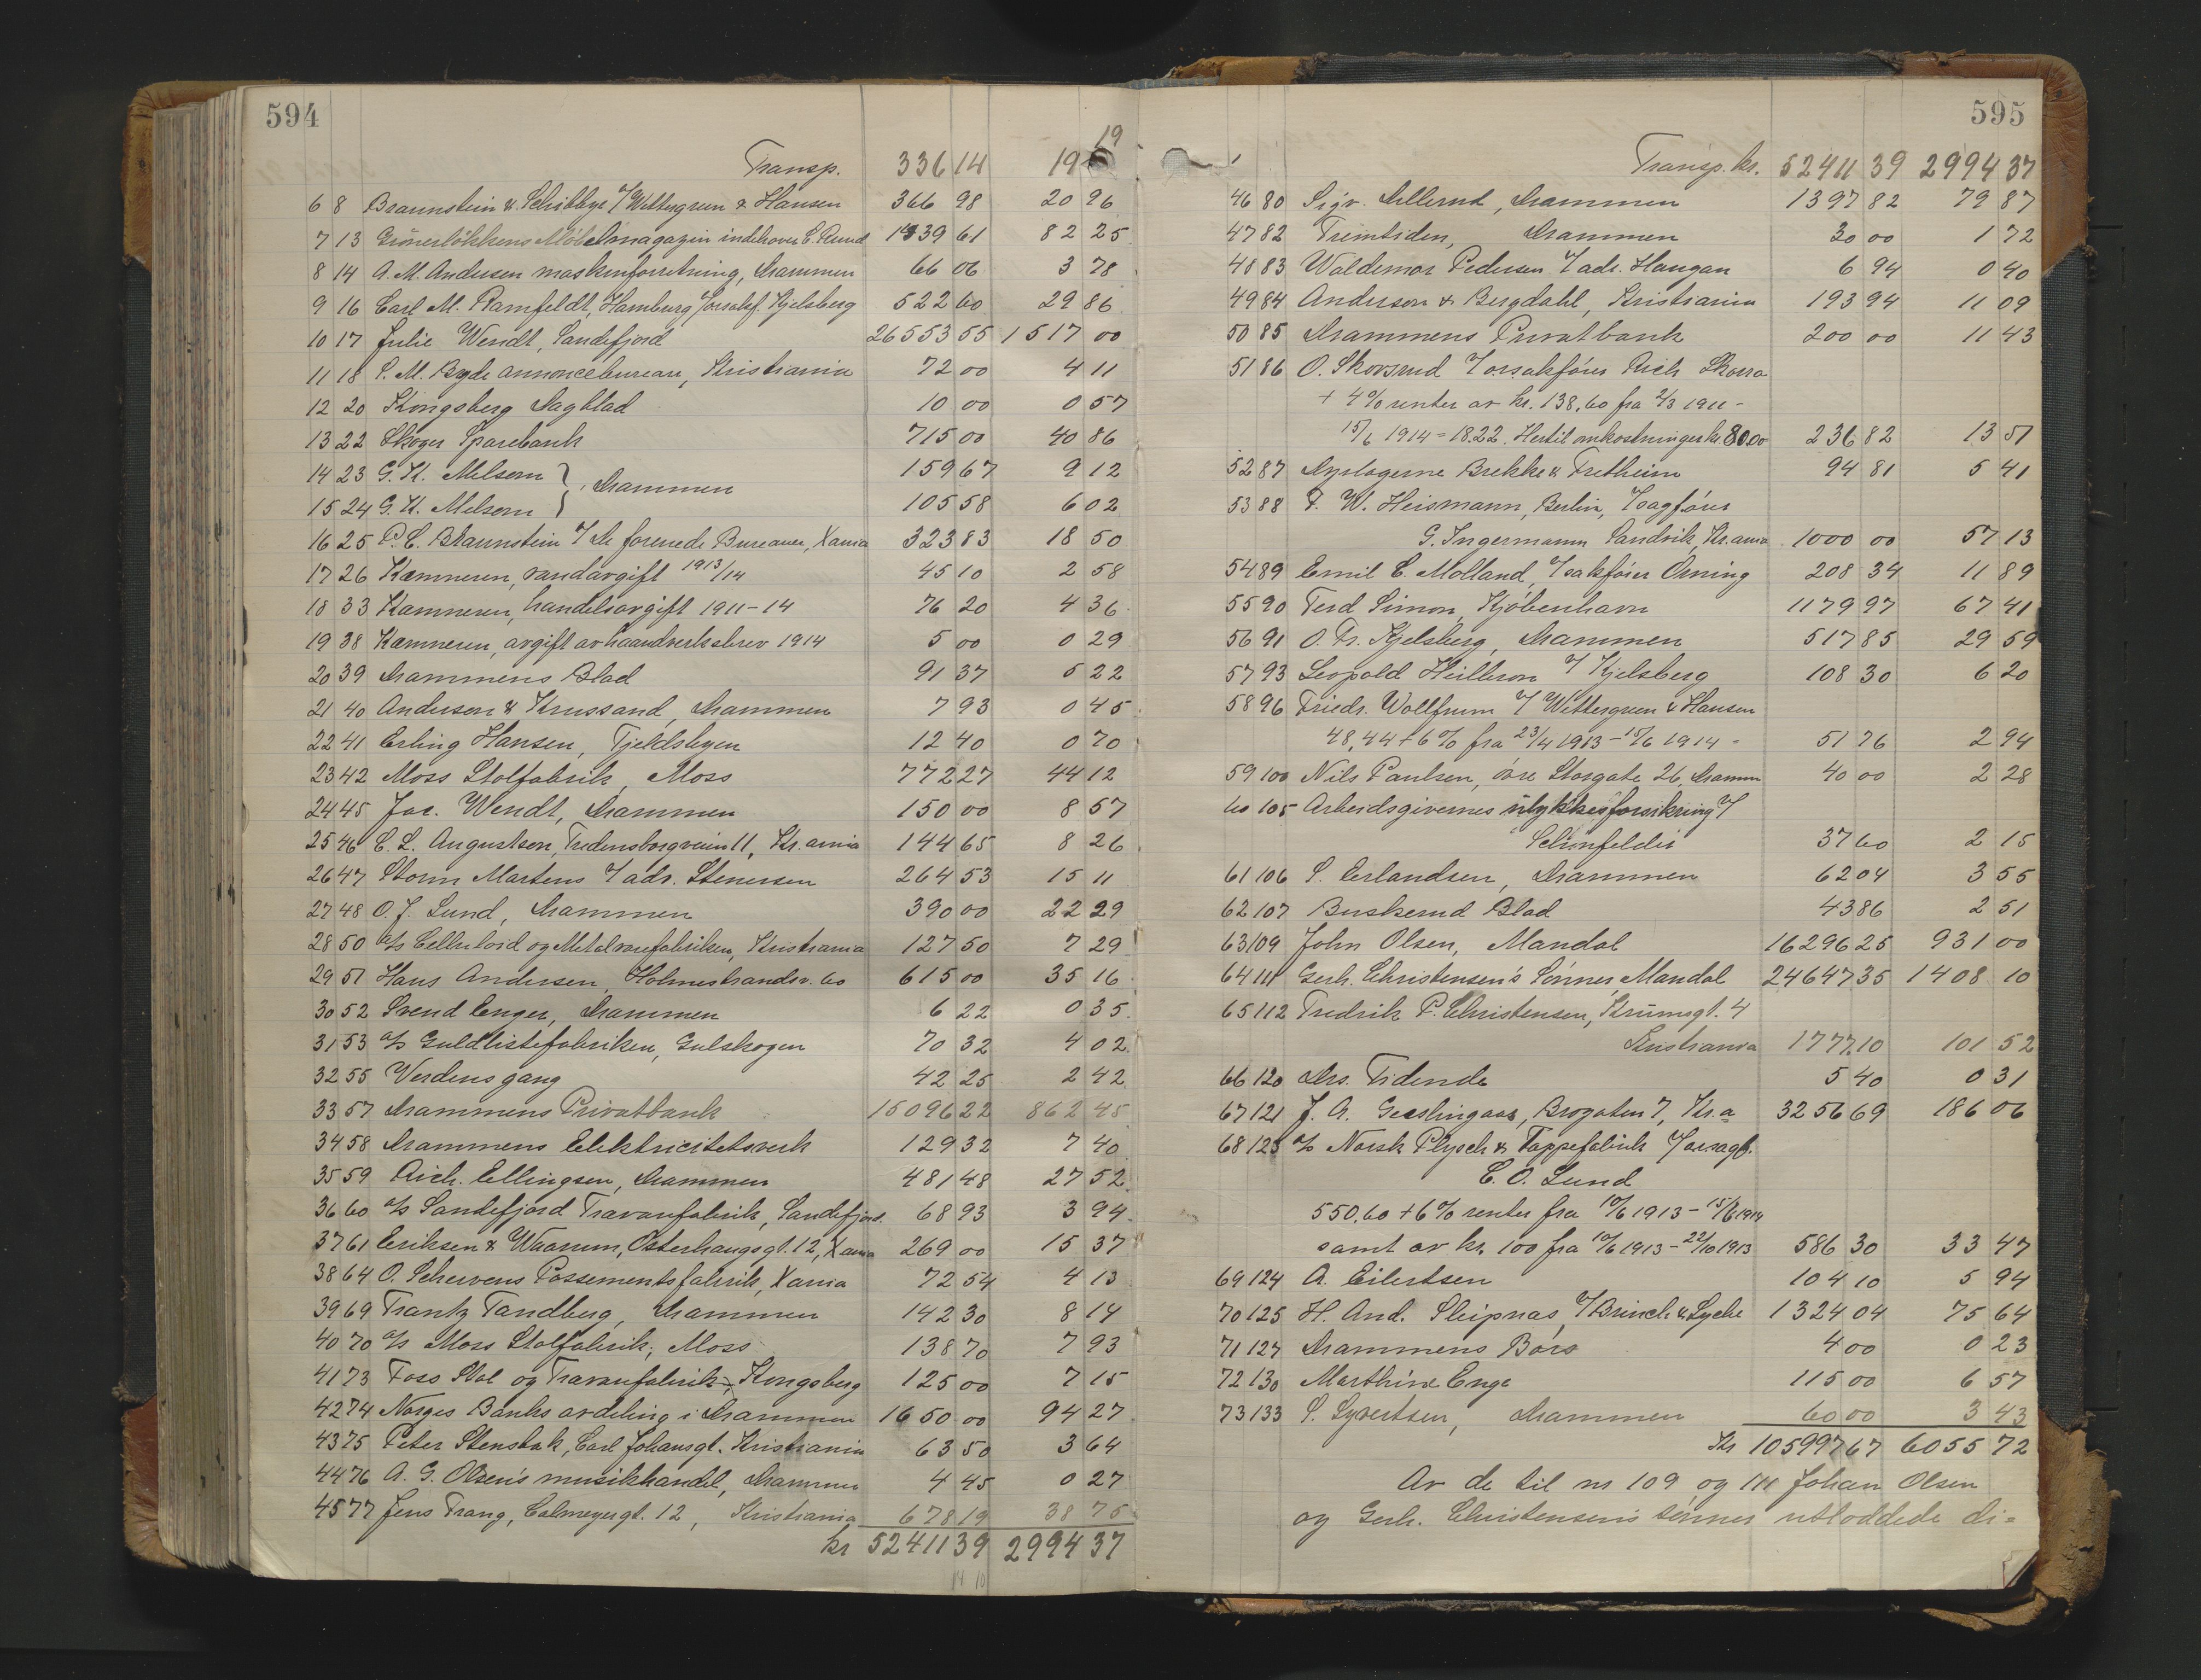 594
19
Transp. 336 14 19
6 8 Braunstein & Schibbye v/ Wettergreen & Hansen 366 98 20 96
7 13 Grünerløkkens Møbelmagazin indehaver C. Ruud 1439 61 82 25
8 14 A. M. Andersen maskinforretning, Drammen 66 06 3 78
9 16 Carl M. Ramfeldt, Hamburg v/ orsakf. Kjelsberg 522 60 29 86
10 17 Julie Wendt, Sandefjord 26553 55 1517 00
11 18 S. M. Bryde annoncebureau, Kristiania 72 00 4 11
12 20 Kongsberg Dagblad 10 00 0 57
13 22 Skoger Sparebank 715 00 40 86
14 23 G. K. Melsom } Drammen 159 67 9 12
15 24 G. K. Melsom } 105 58 6 02
16 25 P. C. Braunstein v/ De forenede Bureauer, Xania 323 83 18 50
17 26 Kæmneren, vandavgift 1913/14 45 10 2 58
18 33 Kæmneren, handelsavgift 1911-14 76 20 4 36
19 38 Kæmneren, avgift av haandverksbrev 1914 5 00 0 29
20 39 Drammens Blad 91 37 5 22
21 40 Anderson & Krussand, Drammen 7 93 0 45
22 41 Erling Hansen, Tjeldsbyen 12 40 0 70
23 42 Moss Stolfabrik, Moss 772 27 44 12
24 45 Jac. Wendt, Drammen 150 00 8 57
25 46 C. L. Augustson, Fredensborgveien 11, Kr.ania 144 65 8 26
26 47 Storm Martens v/ adv. Stenersen 264 53 15 11
27 48 O. J. Lund, Drammen 390 00 22 29
28 50 a/s Celluloid og Metalvarefabriken, Kristiania 127 50 7 29
29 51 Hans Andersen, Holmestrandsv. 60 615 00 35 16
30 52 Svend Enger, Drammen 6 22 0 35
31 53 a/s Guldlistefabriken, Gulskogen 70 32 4 02
32 55 Verdens gang 42 25 2 42
33 57 Drammens Privatbank 15096 22 862 45
34 58 Drammens Elektricitetsverk 129 32 7 40
35 59 Rich. Ellingsen, Drammen 481 48 27 52
36 60 a/s Sandefjord Travarefabrik, Sandefjord. 68 93 3 94
37 61 Eriksen & Waarum, Østerhaugsgt. 12, Xania 269 00 15 37
38 64 O. Schevens Possementsfabrik, Xania 72 54 4 13
39 69 Frantz Tandberg, Drammen 142 30 8 14
40 70 a/s Moss Stolfabrik, Moss 138 70 7 93
41 73 Foss Stol og Travarefabrik, Kongsberg 125 00 7 15
42 74 Norges Banks avdeling i Drammen 1650 00 94 27
43 75 Peter Stensbak, Carl Johansgt. Kristiania 63 50 3 64
44 76 A. G. Olsen's musikhandel, Drammen 4 45 0 27
45 77 Jens Prang, Calmeyergt. 12, Kristiania 678 19 38 75
kr 52411 39 2994 37
14 10
595
Transp. kr. 52411 39 2994 37
46 80 Sigv. Allerud, Drammen 1397 82 79 87
47 82 Fremtiden, Drammen 30 00 1 72
48 83 Waldemar Pedersen v/ adv. Haugan 6 94 0 40
49 84 Anderson & Bergdahl, Kristiania 193 94 11 09
50 85 Drammens Privatbank 200 00 11 43
51 86 O. Skovsrud v/ orsakfører Rich Skarra
+ 4% renter av kr. 138,60 fra 2/3 1911 -
15/6 1914 = 18.22. Hertil omkostninger kr 80.00 236 82 13 51
52 87 Dyrlægerne Brekke & Fretheim 94 81 5 41
53 88 F. W. Heismann, Berlin, v/ sagfører
G. Ingermann Sandvik, Kr.ania 1000 00 57 13
54 89 Emil C. Molland, v/ sakfører Orning 208 34 11 89
55 90 Ferd Simon, Kjøbenhavn 1179 97 67 41
56 91 O. Fr. Kjelsberg, Drammen 517 85 29 59
57 93 Leopold Heilleron v/ Kjelsberg 108 30 6 20
58 96 Friedr. Wollfrum v/ Wettergreen & Hansen
48,44 + 6% fra 23/4 1913 - 15/6 1914 = 51 76 2 94
59 100 Nils Paulsen, øvre Storgate 26, Dramm 40 00 2 28
60 105 Arbeidsgivernes ulykkesforsikring v/
Schinfelder 37 60 2 15
61 106 S. Erlandsen, Drammen 62 04 3 55
62 107 Buskerud Blad 43 86 2 51
63 109 John Olsen, Mandal 16296 25 931 00
64 111 Gerh. Christensen's Sønner, Mandal 24647 35 1408 10
65 112 Fredrik P. Christensen, Krumsgt. 4
Kristiania 1777 10 101 52
66 120 Drs. Tidende 5 40 0 31
67 121 J. A. Geeslingaas, Brogaten 7, Kr.a 3256 69 186 06
68 123 a/s Norsk Plysch & Tæppefabrik v/ orsagf.
C. O. Lund
550,60 + 6% renter fra 10/6 1913 - 15/6 1914
samt av kr. 100 fra 10/6 1913 - 22/10 1913 586 30 33 47
69 124 A. Eilertsen 104 10 5 94
70 125 H. And. Sleipnæs, v/ Brinch & Lyche 1324 04 75 64
71 127 Drammens Børs 4 00 0 23
72 130 Marthine Enge 115 00 6 57
73 133 S. Syvertsen, Drammen 60 00 3 43
Kr 105997 67 6055 72
Av de til nr 109 og 111 Johan Olsen
og Gerh. Christensens sønner utloddede di=